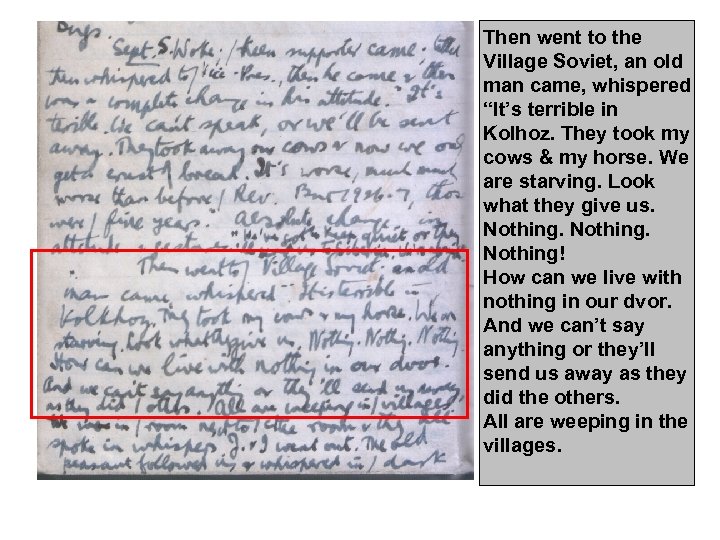 Sept. 5. Woke. / keen supporter came. 
then whispered to / Vice-Pres., then he came & there
was a complete change in his attitude. "It's
terrible. We can't speak, or we'll be sent
away. They took away our cows & now we only
get a crust of bread. It's worse, much much
worse than before / Rev. But 1926-7, those
were / fine years." Absolute change in
attitude
"We've got to keep quiet or they
Then went to / Village Soviet. an old
man came, whispered "It is terrible in
Kolkhoz. They took my cows & my horse. We are
starving. Look what they give us. Nothing. Nothing. Nothing
How can we live with nothing in our dvor.
And we can't say anything or they'll send us away
as they did / others. All are weeping in / villages
in / room next to / the room & they all
spoke in whispers. J. & I went out. The old
peasant followed us & whispered in / dark
Then went to the
Village Soviet, an old
man came, whispered
“It’s terrible in
Kolhoz. They took my
cows & my horse. We
are starving. Look
what they give us.
Nothing. Nothing.
Nothing!
How can we live with
nothing in our dvor.
And we can’t say
anything or they’ll
send us away as they
did the others.
All are weeping in the
villages.